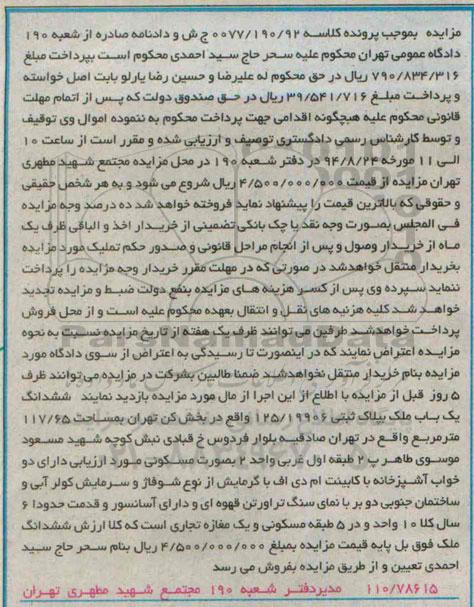 مزایده بموجب پرونده کلاسه ۰۰۷۷/۱۹۰/۹۲ ج ش و دادنامه صادره از شعبه ۱۹۰
دادگاه عمومی تهران محکوم علیه سحر حاج سید احمدی محکوم است بپرداخت مبلغ
۷۹۰/۸۳۴/۳۱۶ ریال در حق محکوم له علیرضا و حسین رضا یارلو بابت اصل خواسته
و پرداخت مبلغ ۳۹/۵۴۱/۷۱۶ ریال در حق صندوق دولت که پس از اتمام مهلت
قانونی محکوم علیه هیچگونه اقدامی جهت پرداخت محکوم به ننموده اموال وی توقیف
و توسط کارشناس رسمی دادگستری توصیف و ارزیابی شده و مقرر است از ساعت ۱۰
الی ۱۱ مورخه ۹۴/۸/۲۴ در دفتر شعبه ۱۹۰ در محل مزایده مجتمع شهید مطهری
تهران مزایده از قیمت ۴/۵۰۰/۰۰۰/۰۰۰ ریال شروع می شود و به هر شخص حقیقی
و حقوقی که بالاترین قیمت را پیشنهاد نماید فروخته خواهد شد ده درصد وجه مزایده
فی المجلس بصورت وجه نقد یا چک بانکی تضمینی از خریدار اخذ و الباقی ظرف یک
ماه از خریدار وصول و پس از انجام مراحل قانونی و صدور حکم تملیک مورد مزایده
بخریدار منتقل خواهدشد در صورتی که در مهلت مقرر خریدار وجه مزایده را پرداخت
ننماید سپرده وی پس از کسر هزینه های مزایده بنفع دولت ضبط و مزایده تجدید
خواهد شد کلیه هزنیه های نقل و انتقال بعهده محکوم علیه است و از محل فروش
پرداخت خواهدشد طرفین می توانند ظرف یک هفته از تاریخ مزایده نسبت به نحوه
مزایده اعتراض نمایند که در اینصورت تا رسیدگی به اعتراض از سوی دادگاه مورد
مزایده بنام خریدار منتقل نخواهدشد ضمنا طالبین بشرکت در مزایده می توانند ظرف
۵ روز قبل از مزایده با اطلاع از این اجرا از مال مورد مزایده بازدید نمایند ششدانگ
یک باب ملک بپلاک ثبتی ۱۲۵/۱۹۹۰۶ واقع در بخش کن تهران بمساحت ۱۱۷/۶۵
مترمربع واقع در تهران صادقیه بلوار فردوس خ قبادی نبش کوچه شهید مسعود
موسوی طاهر پ ۲ طبقه اول غربی واحد ۲ بصورت مسکونی مورد ارزیابی دارای دو
خواب آشپزخانه با کابینت ام دی اف با گرمایش از نوع شوفاژ و سرمایش کولر آبی و
ساختمان جنوبی دو بر با نمای سنگ تراورتن قهوه ای و دارای آسانسور و قدمت حدودا ۶
سال کلا ۱۰ واحد و در ۵ طبقه مسکونی و یک مغازه تجاری است که کلا ارزش ششدانگ
ملک فوق بل پایه قیمت مزایده بمبلغ ۴/۵۰۰/۰۰۰/۰۰۰ ریال بنام سحر حاج سید
احمدی تعیین و از طریق مزایده بفروش می رسد
۱۱۰/۷۸۶۱۵ مدیردفتر شعبه ۱۹۰ مجتمع شهید مطهری تهران